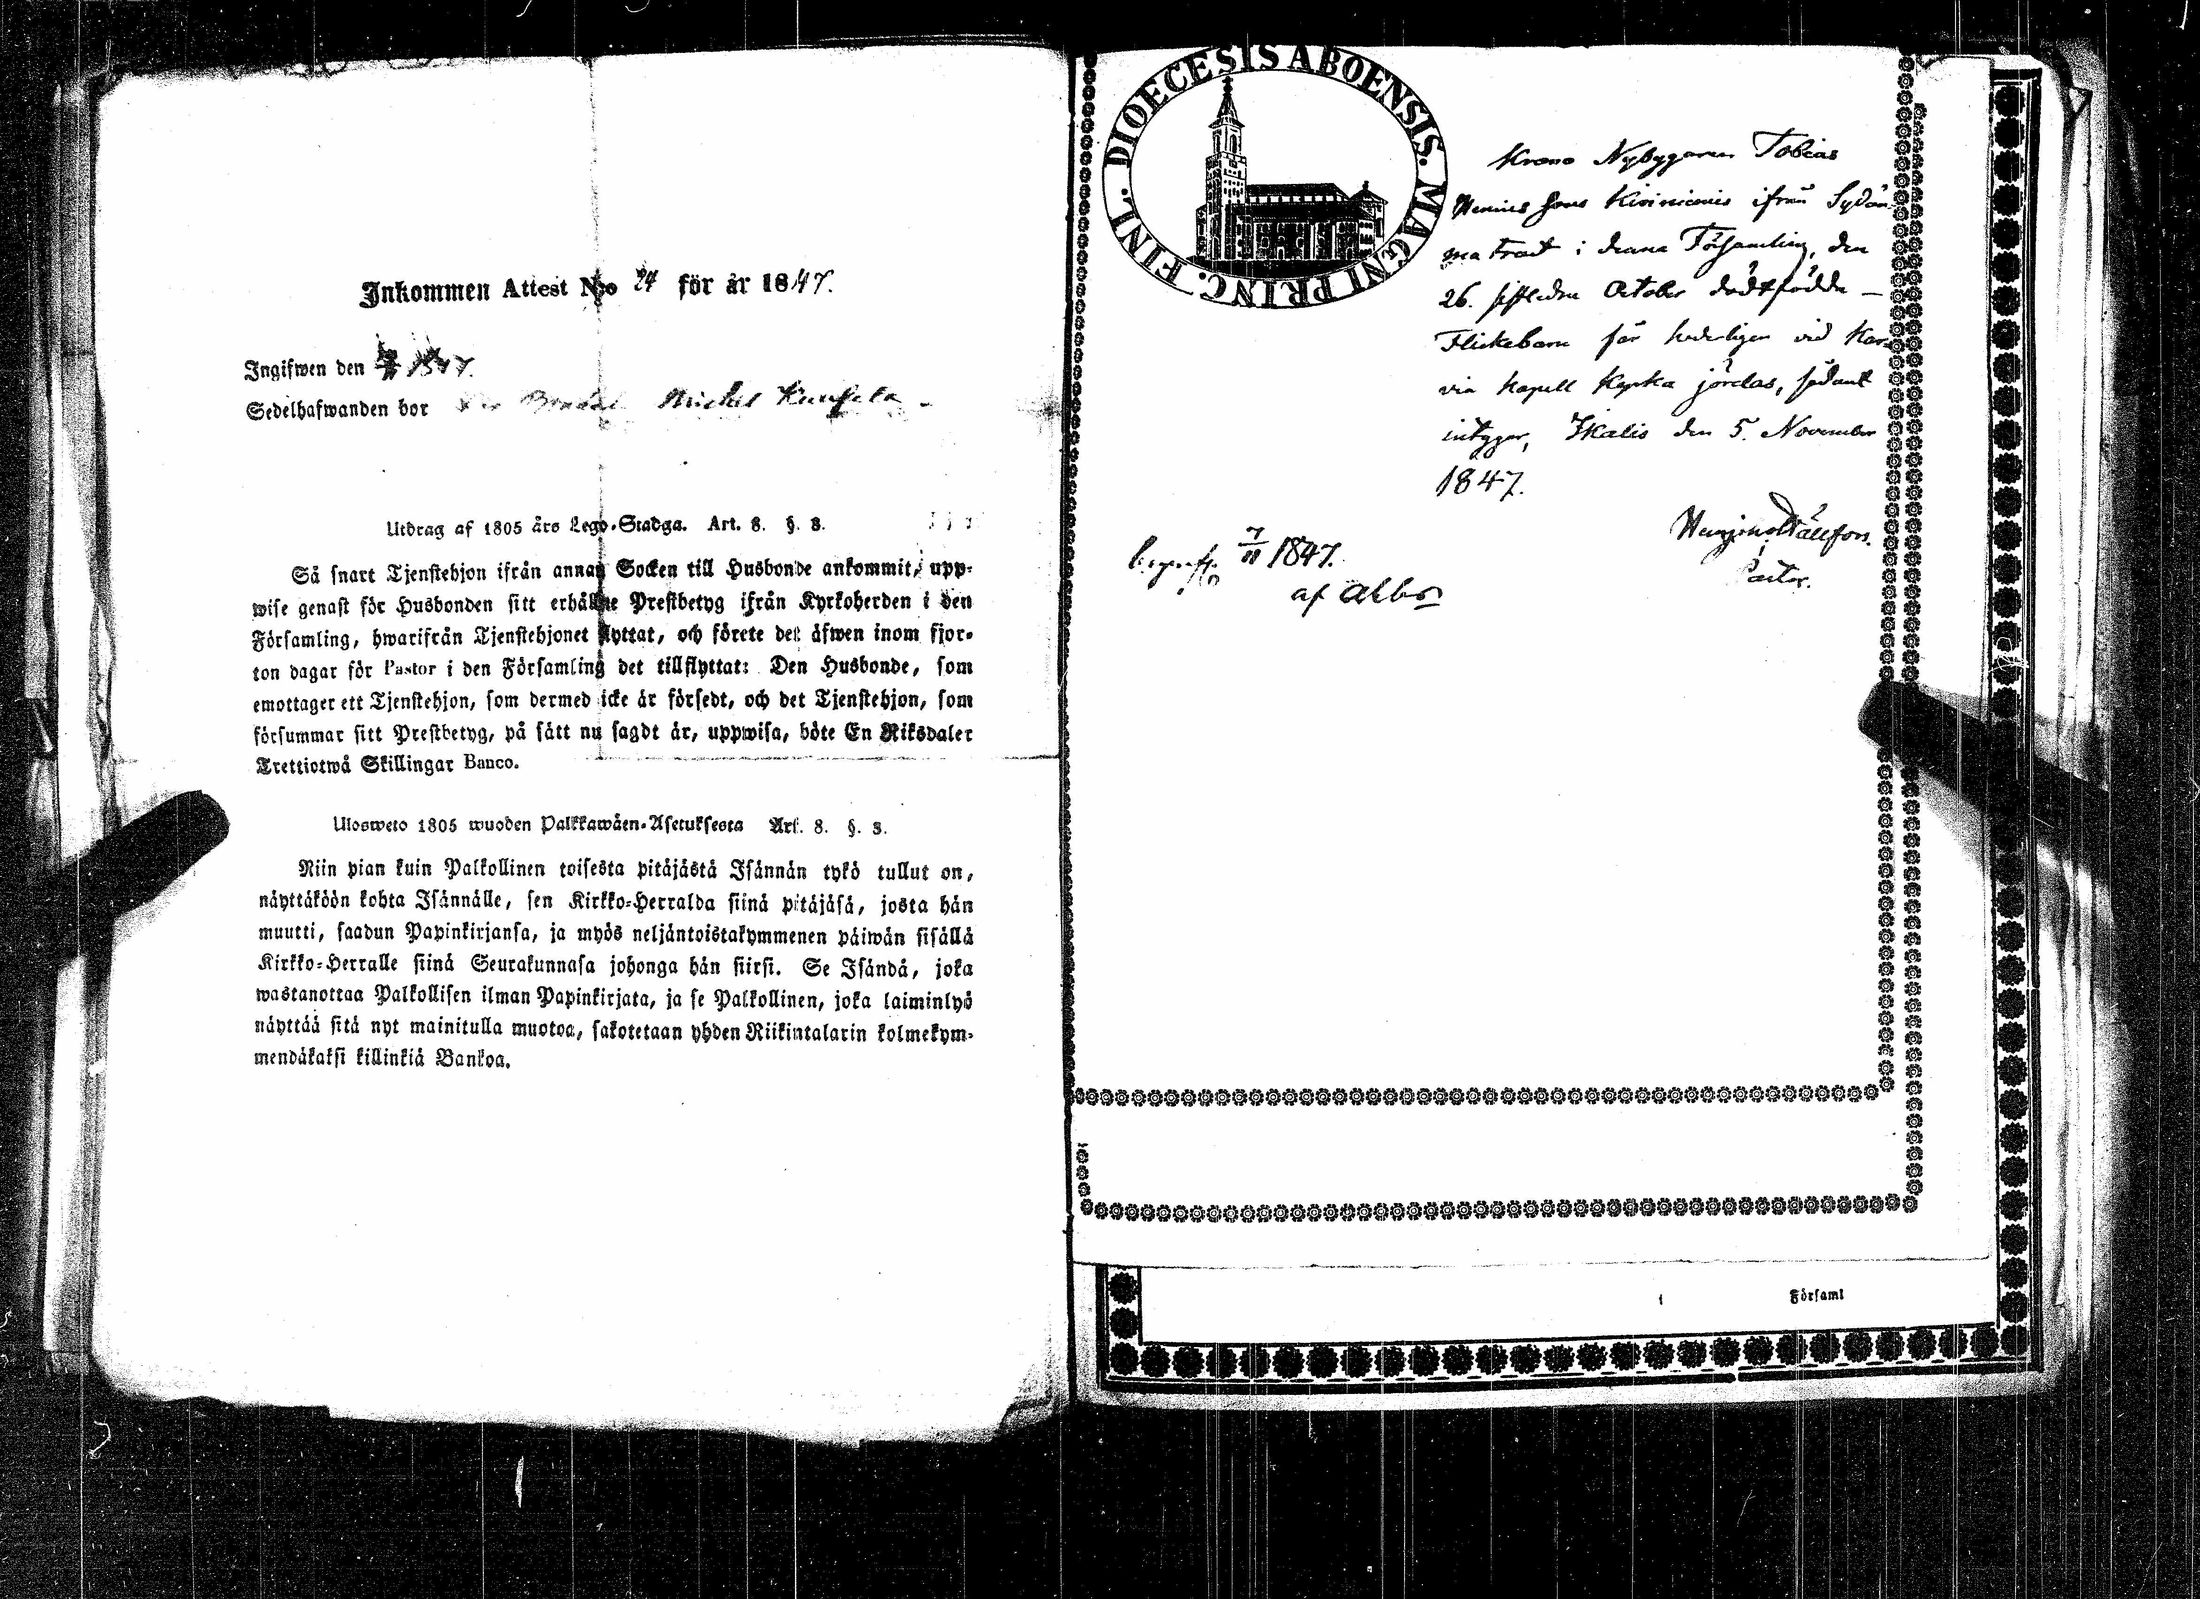 Inkommen Attest N:o 24 för år 1847.
Ingifwen den 1847.
Sedelhafwanden bor Michel
Utdrag af 1805 års Lego-Stadga. Art. 8. §. 3.
Så snart Tjenstehjon ifrån annan Socken till Husbonde ankommit, upp-
wise genast för Husbonden sitt erhållne Prestbetyg ifrån Kyrkoherden i den
Församling, hwarifrån Tjenstehjonet flyttat, och förete det äfwen inom fjor-
ton dagar för Pastor i den Församling det tillflyttat: Den Husbonde, som
emottager ett Tjenstehjon, som dermed icke är försedt, och det Tjenstehjon, som
försummar sitt Prestbetyg, på sätt nu sagdt är, uppwisa, böte En Riksdaler
Trettiotwå Skillingar Banco.
Ulosweto 1805 wuoden Palkkawäen-Asetuksesta Art. 8. §. 3.
Niin pian kuin Palkollinen toisesta pitäjästä Isännän tykö tullut on,
näyttäköön kohta Isännälle, sen Kirkko-Herralda siinä pitäjäsä, josta hän
muutti, saadun Papinkirjansa, ja myös neljäntoistakymmenen päiwän sisällä
Kirkko-Herralle siinä Seurakunnasa johonga hän siirsi. Se Isändä, joka
wastanottaa Palkollisen ilman Papinkirjata, ja se Palkollinen, joka laiminlyö
näyttää sitä nyt mainitulla muotoa, sakotetaan yhden Riikintalarin kolmekym-
mendäkaksi killinkiä Bankoa.
DIOECESIS ABOENSIS. MAGNI PRINC. FINL.
Krono Nybyggaren Tobias
Sons Kiviniemis ifrån Sydän
ma trakt i denna Församling, den
26. sistledne October dödfödda
Flickebarn får hederligen vid Kar-
via kapell Kyrka jordas, sådant
intygar, Ikalis den 5. November
1847.
Pastor.
begrafs. 7/11 1847.
af
Församl